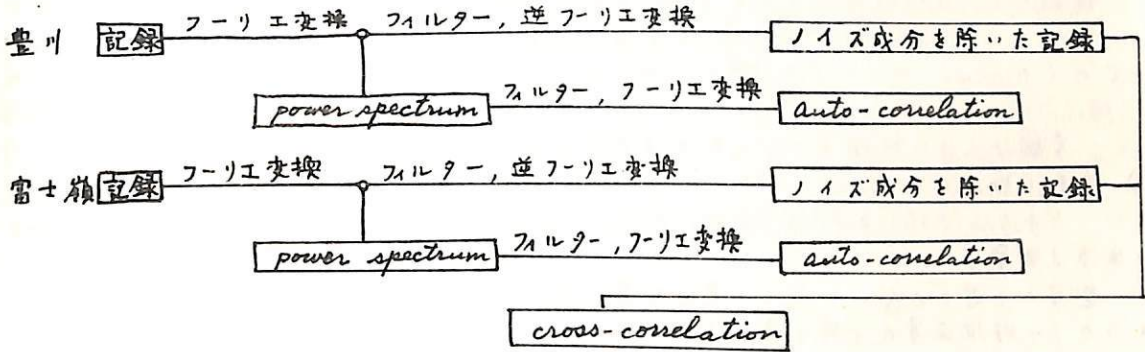 豊川 記録 フーリエ変換 フィルター, 逆フーリエ変換 ノイズ成分を除いた記録
power spectrum フィルター, フーリエ変換 auto-correlation
富士嶺 記録 フーリエ変換 フィルター, 逆フーリエ変換 ノイズ成分を除いた記録
power spectrum フィルター, フーリエ変換 auto-correlation
cross-correlation